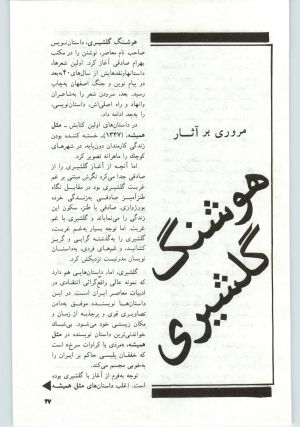 مروری بر آثار
هوشنگ
گلشیری
هوشنگ گلشیری، داستان‌نویس
صاحب نام معاصر، نوشتن را در مکتب
بهرام صادقی آغاز کرد. اولین شعرها،
داستانها و نقدهایش از سال‌های ۴۰ به‌بعد
در پیام نوین و جنگ اصفهان به‌چاپ
رسید. بعد، سرودن شعر را به‌شاعران
وانهاد و راه اصلی‌اش، داستان‌نویسی،
را به‌جد ادامه داد.
در داستان‌های اولین کتابش ـ مثل
همیشه، (۱۳۴۷)ـ خسته کننده بودن
زندگی کارمندان دون‌پایه، در شهرهای
کوچک را ماهرانه تصویر کرد.
اما آنچه از آغاز گلشیری را از
صادقی جدا می‌کرد نگرش مبتنی بر غم
غربت گلشیری بود در مقابل نگاه
طنزآمیز صادقی به‌زندگی خرده
بورژوازی. صادقی با طنز، سکون این
زندگی را می‌نمایاند و گلشیری با غم
غربت. اما توجه بسیار به‌غم غربت،
گلشیری را به‌گذشته گرایی و گریز
کشانید، و غم‌های فردی، به‌داستان
نویسان مدرنیست نزدیکش کرد.
گلشیری، اما، داستان‌هایی هم دارد
که نمونه عالی واقع‌گرائی انتقادی در
ادبیات معاصر ایران است. در این
داستان‌ها نویسنده موفق به‌دادن
تصاویری قوی و پرجذبه از زمان و
مکان زیستی خود می‌شود. بی‌شک
خواندنی‌ترین داستان نویسنده در مثل
همیشه، «مردی با کراوات سرخ» است
که خفقان پلیسی حاکم بر ایران را
به‌خوبی مجسم می‌کند.
توجه به‌فرم از آغاز با گلشیری بوده
است. اغلب داستان‌های مثل همیشه
۲۷